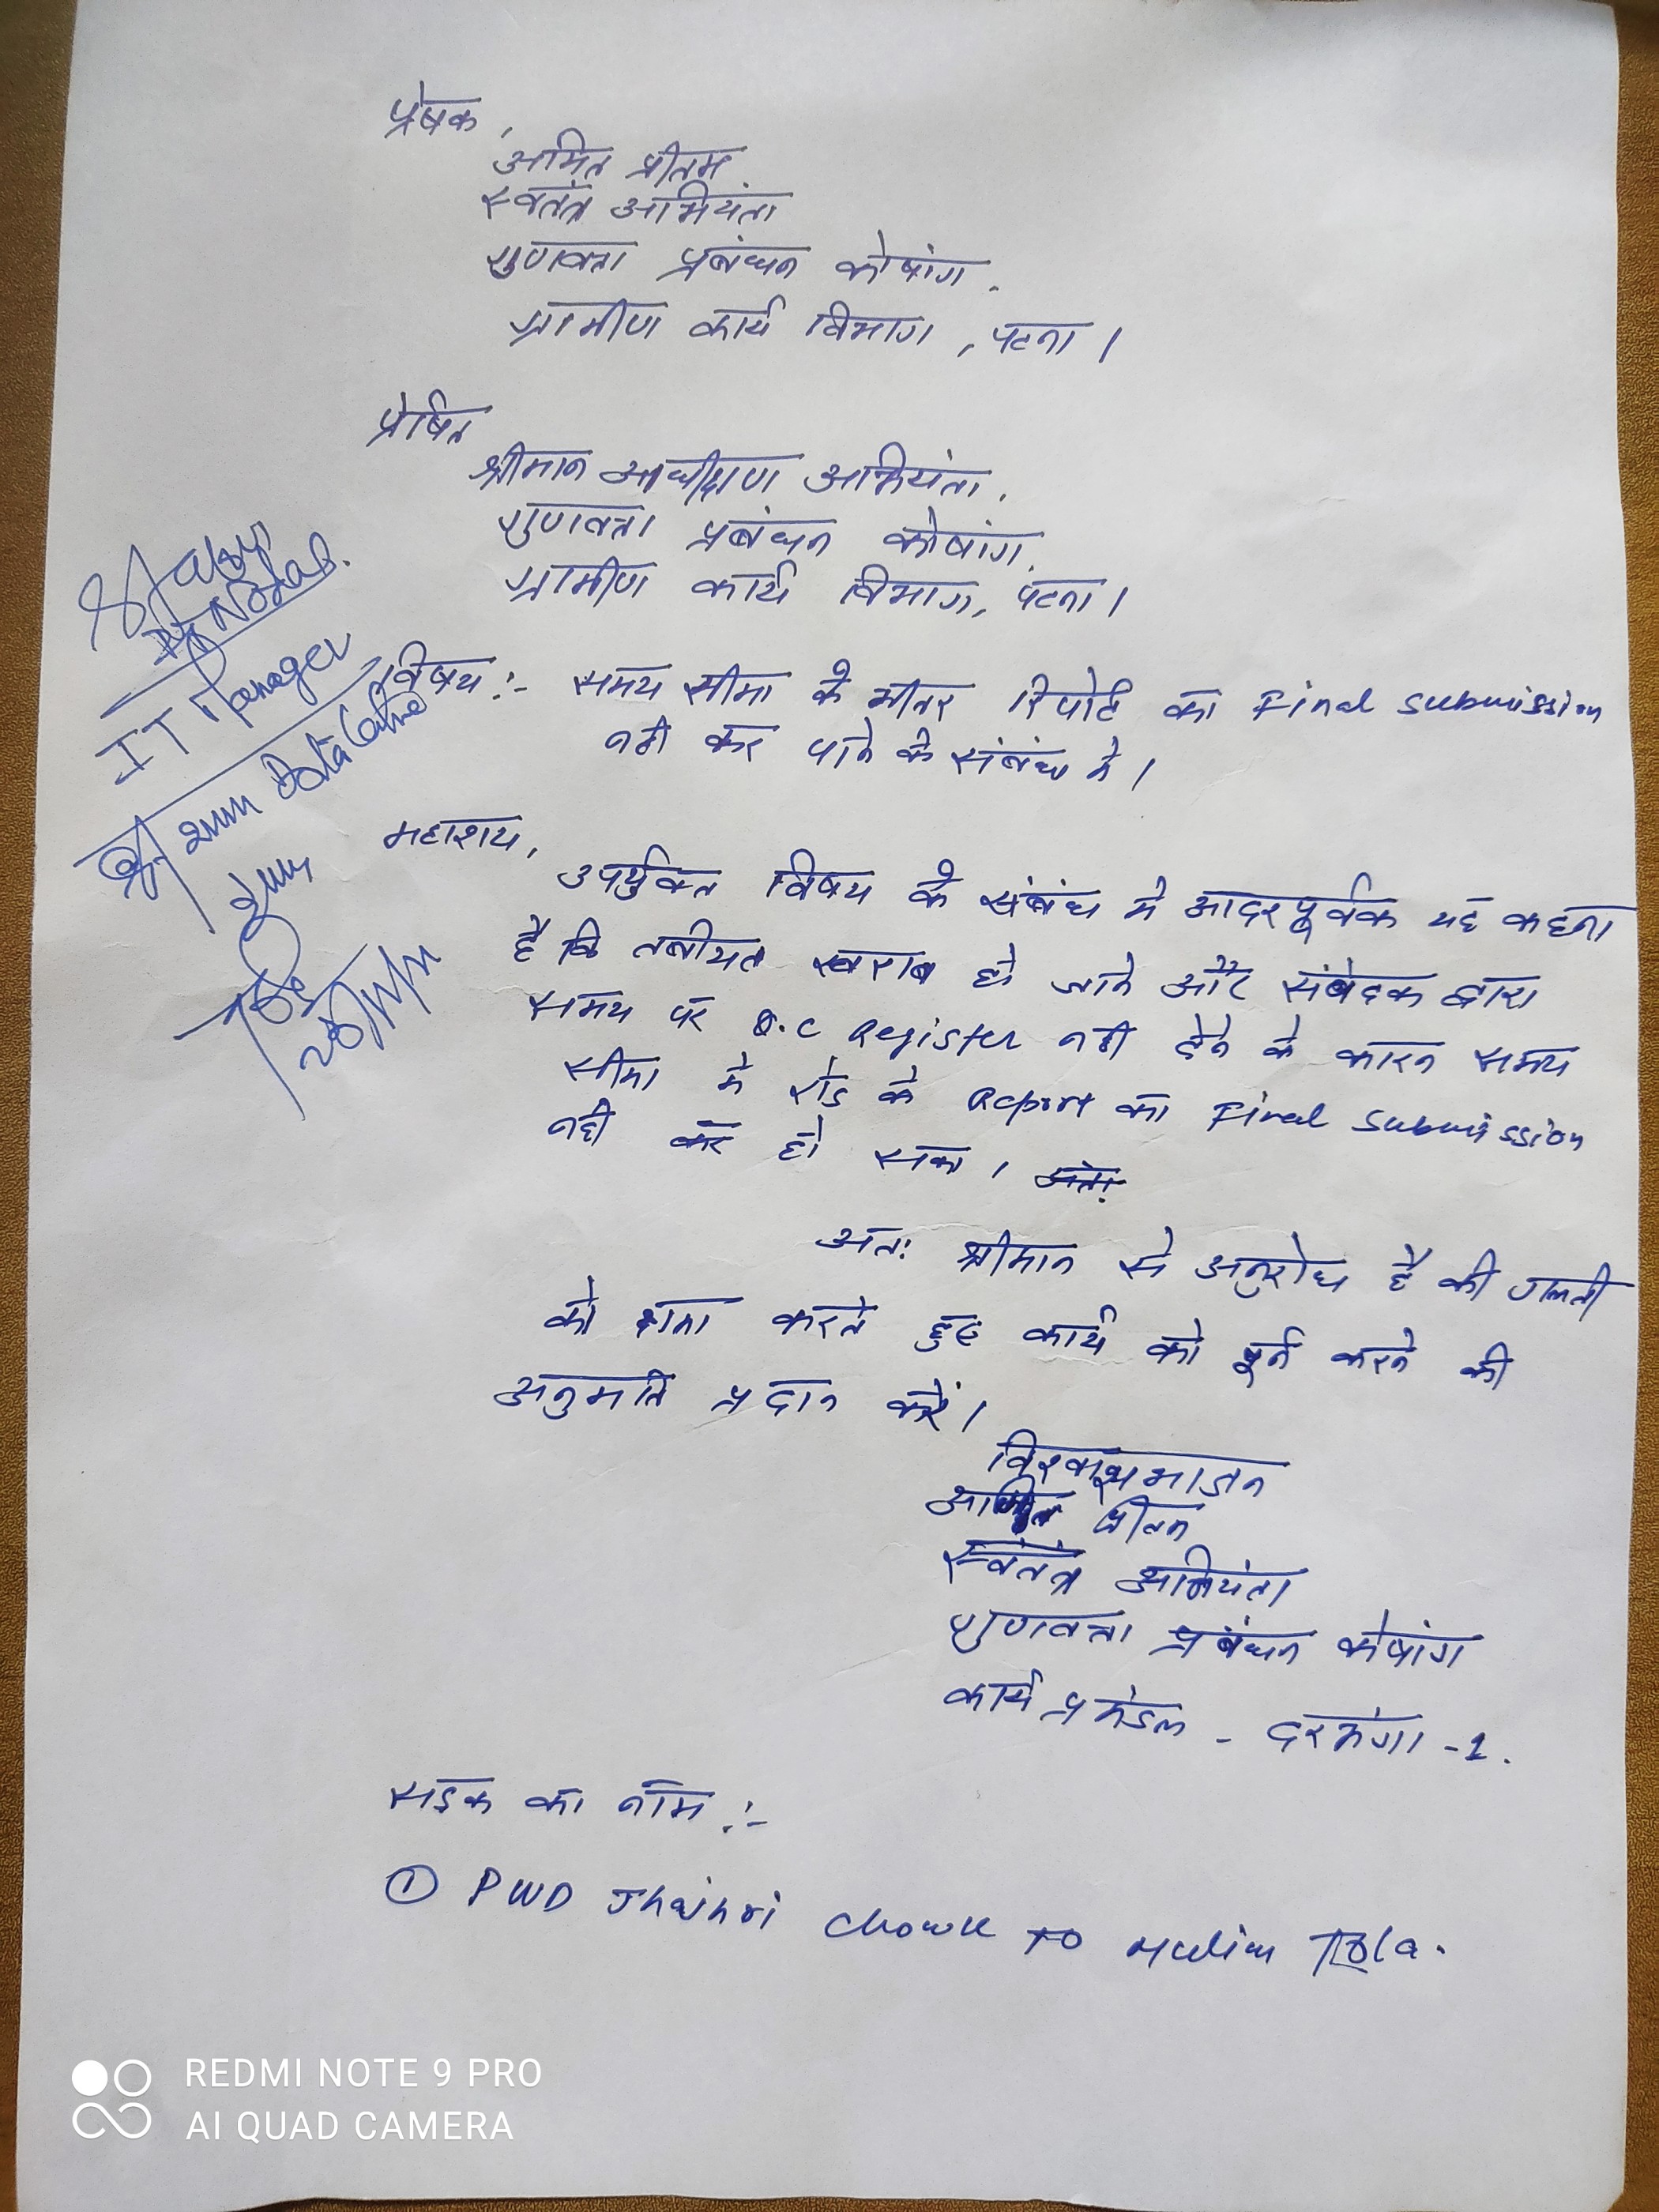 प्रेषक,
अमित प्रीतम
स्वतंत्र अभियंता
गुणवत्ता प्रबंधन कोषांग
ग्रामीण कार्य विभाग, पटना।
प्रेषित
श्रीमान अधीक्षण अभियंता,
गुणवत्ता प्रबंधन कोषांग,
ग्रामीण कार्य विभाग, पटना।
विषय:- समय सीमा के भीतर रिपोर्ट का Final submission
नही कर पाने के संबंध मे।
महाशय,
उपर्युक्त विषय के संबंध मे आदरपूर्वक यह कहना
है कि तबीयत खराब हो जाने और संवेदक द्वारा
समय पर Q.C Register नही देने के कारन समय
सीमा मे रोड के Report का Final submission
नही कर हो सका। अतः
अतः श्रीमान से अनुरोध है की गलती
को क्षमा करते हुए कार्य को पूर्न करने की
अनुमति प्रदान करें।
विश्वासभाजन
अमित प्रीतम
स्वतंत्र अभियंता
गुणवत्ता प्रबंधन कोषांग
कार्य प्रमंडल - दरभंगा -1.
सड़क का नाम :-
① PWD Jhajhri Chowk TO Muslim Tola.
IT Manager
Data
REDMI NOTE 9 PRO
AI QUAD CAMERA